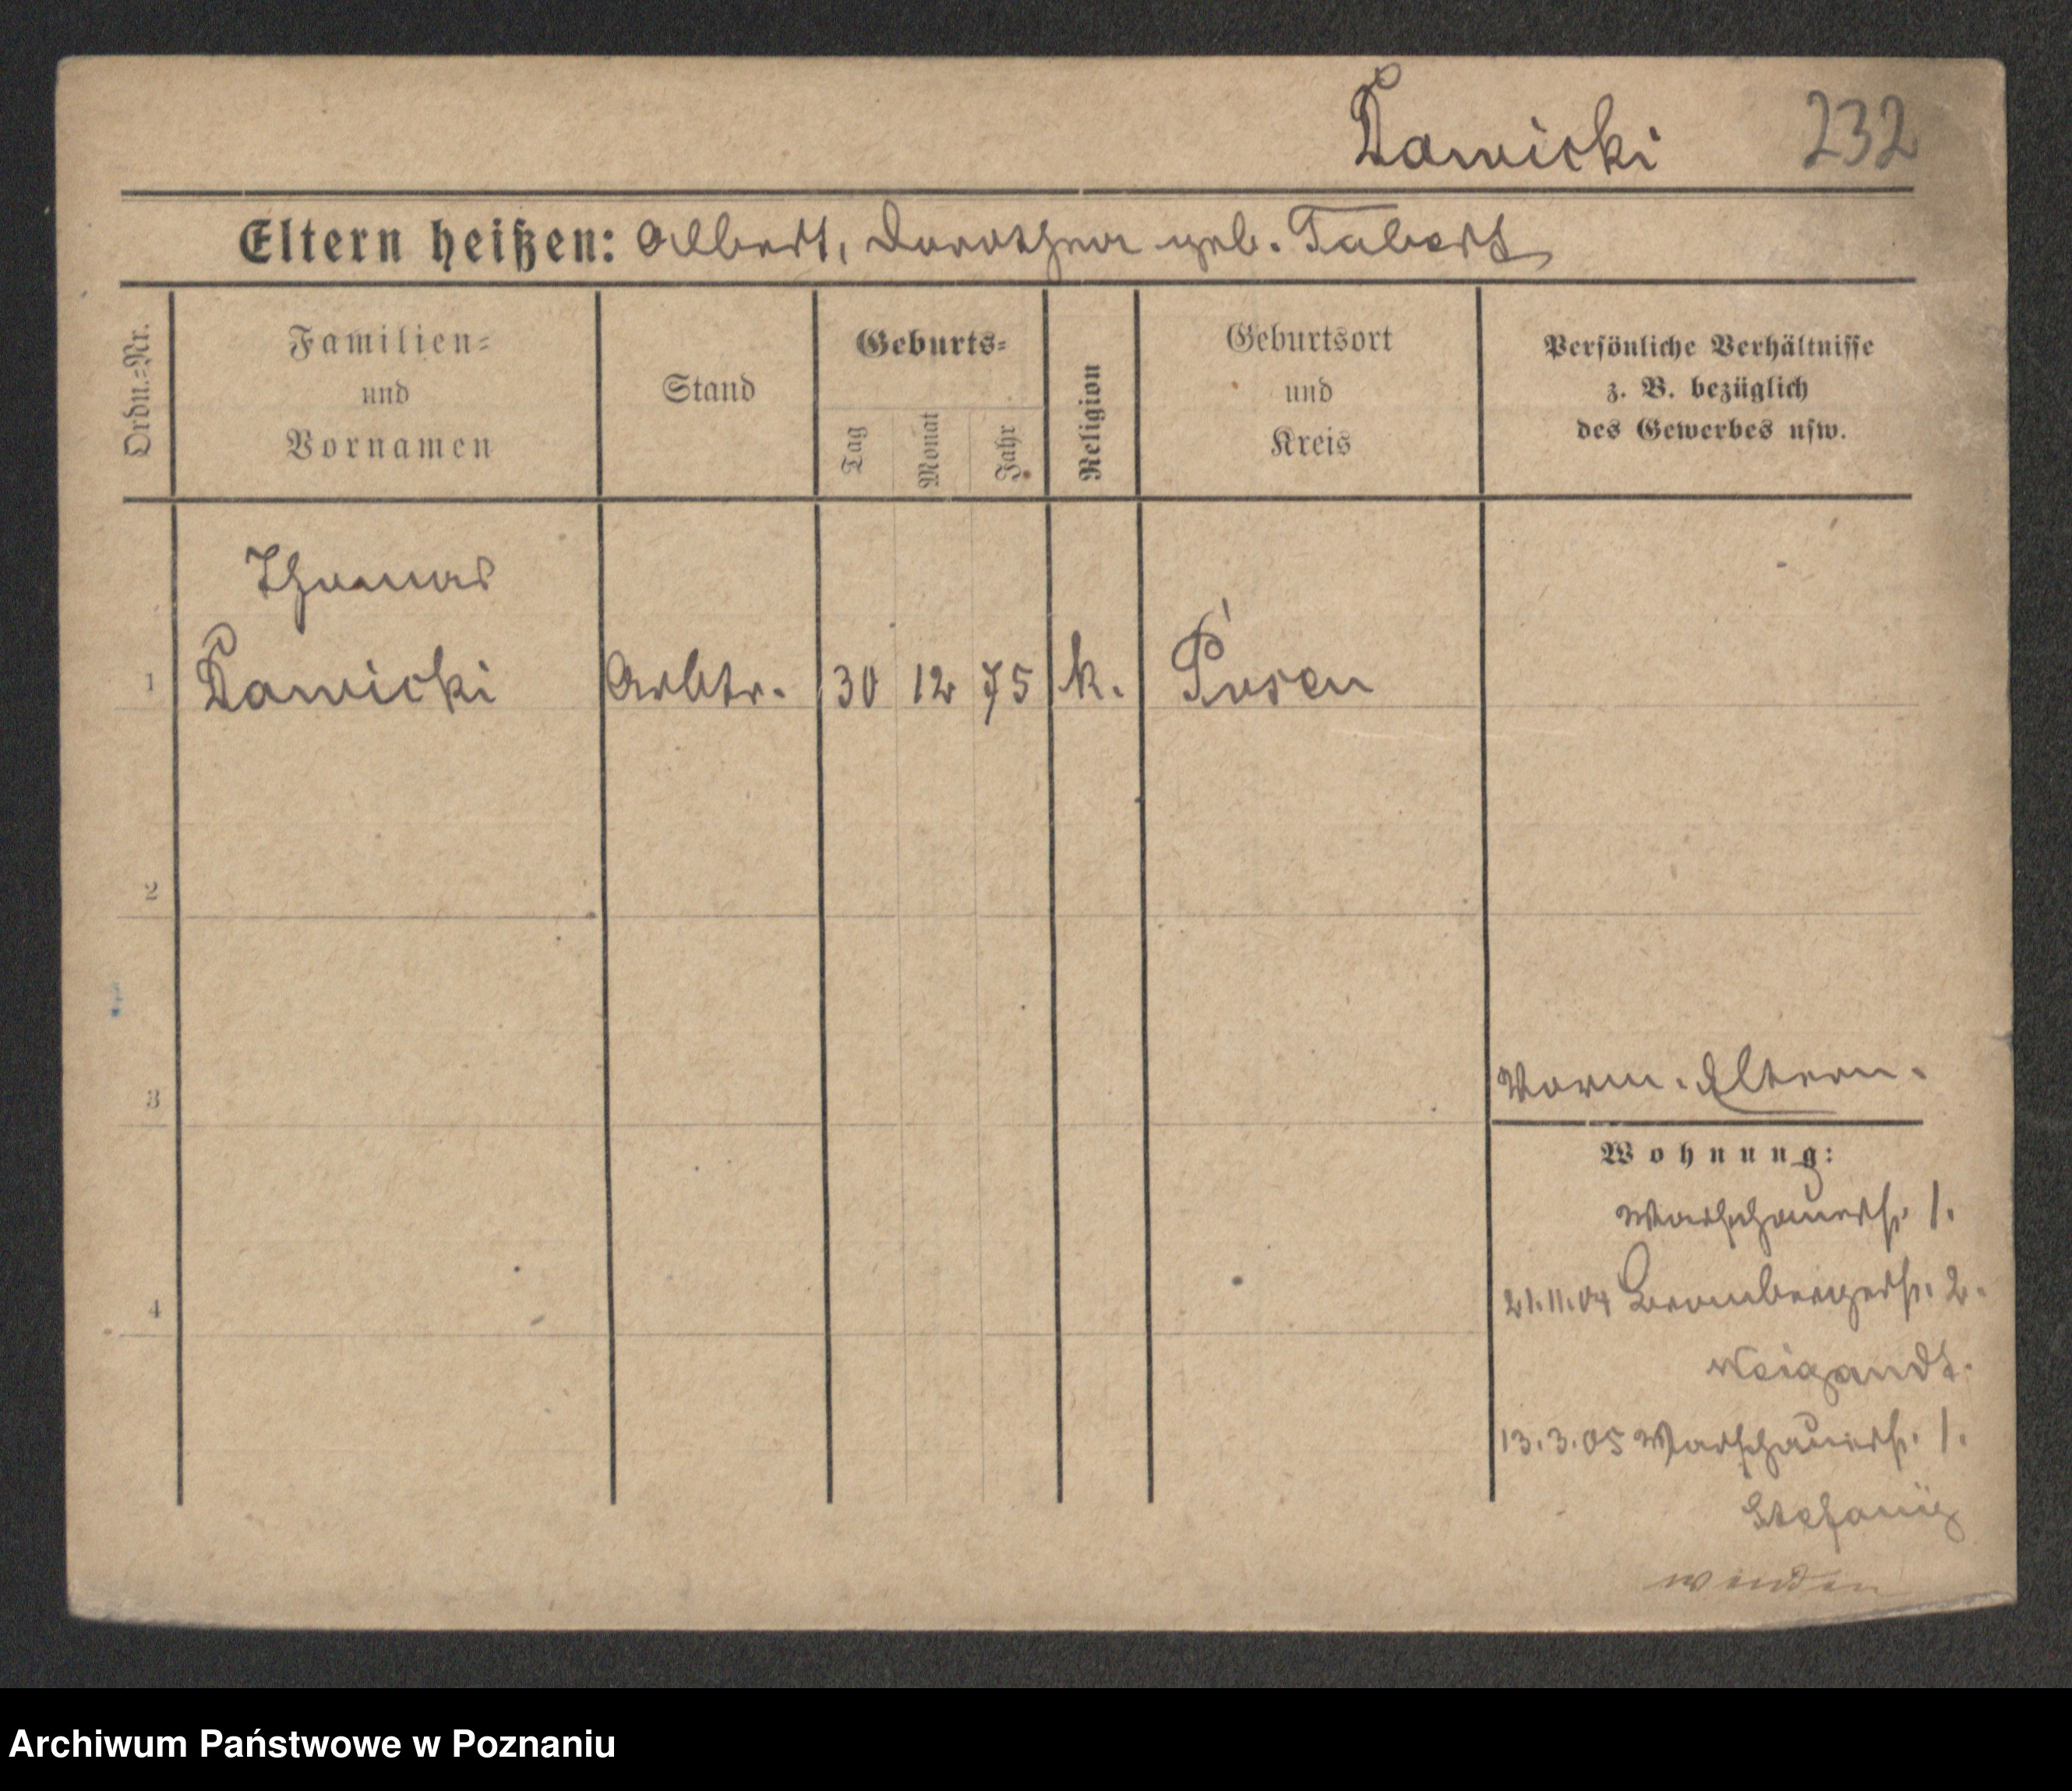 Lawicki 232
Eltern heißen: Albert, Dorothea geb. Tabert
Ordn.=Nr.
Familien=
und
Vornamen
Stand
Geburts=
Tag
Monat
Jahr
Religion
Geburtsort
und
Kreis
Persönliche Verhältnisse
z. B. bezüglich
des Gewerbes usw.
Thomas
1 Lawicki Arbtr. 30 12 75 k. Posen
2
3
Vorm. Eltern.
Wohnung:
Warschauerstr. 1.
21.11.04 Brombergerstr. 2.
4
Weigandt.
13.3.05 Warschauerstr. 1.
wenden
Archiwum Państwowe w Poznaniu